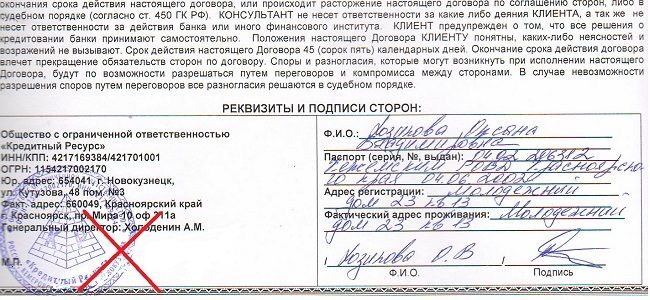 окончания срока действия настоящего договора, или происходит расторжение настоящего договора по соглашению сторон, либо в
судебном порядке (согласно ст. 450 ГК РФ). КОНСУЛЬТАНТ не несет ответственности за какие либо деяния КЛИЕНТА, а так же не
несет ответственности за действия банка или иного финансового института. КЛИЕНТ предупрежден о том, что все решения о
кредитовании банки принимают самостоятельно. Положения настоящего Договора КЛИЕНТУ понятны, каких-либо неясностей и
возражений не вызывают. Срок действия настоящего Договора 45 (сорок пять) календарных дней. Окончание срока действия договора
влечет прекращение обязательств сторон по договору. Споры и разногласия, которые могут возникнуть при исполнении настоящего
Договора, будут по возможности разрешаться путем переговоров и компромисса между сторонами. В случае невозможности
разрешения споров путем переговоров все разногласия решаются в судебном порядке.
РЕКВИЗИТЫ И ПОДПИСИ СТОРОН:
Общество с ограниченной ответственностью
«Кредитный Ресурс»
ИНН/КПП: 4217169384/421701001
ОГРН: 1154217002170
Юр. адрес: 654041, г. Новокузнецк,
ул. Кутузова, 48 пом. №3
Факт. адрес: 660049, Красноярский край
г. Красноярск, пр. Мира 10 оф. 11а
Генеральный директор: Холоденин А.М.
М.П.
«Кредитный Ресурс»
Ф.И.О.:
Владимировна
Паспорт (серия, №, выдан): 0402
Адрес регистрации: Молодежный
дом 23 кв 13
Фактический адрес проживания: Молодежний
дом 23 кв 13
О.В
Ф.И.О. Подпись